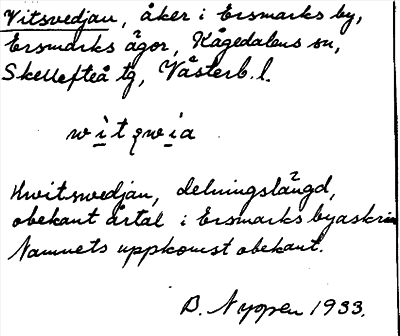 Vitsvedjan, åker i Ersmarks by,
Ersmarks ägor, Kågedalens sn,
Skellefteå tg, Västerb. l.
Hwitswedjan, delningslängd,
obekant årtal i Ersmarks byaskrin
Namnets uppkomst obekant.
B. Nyopen 1933.